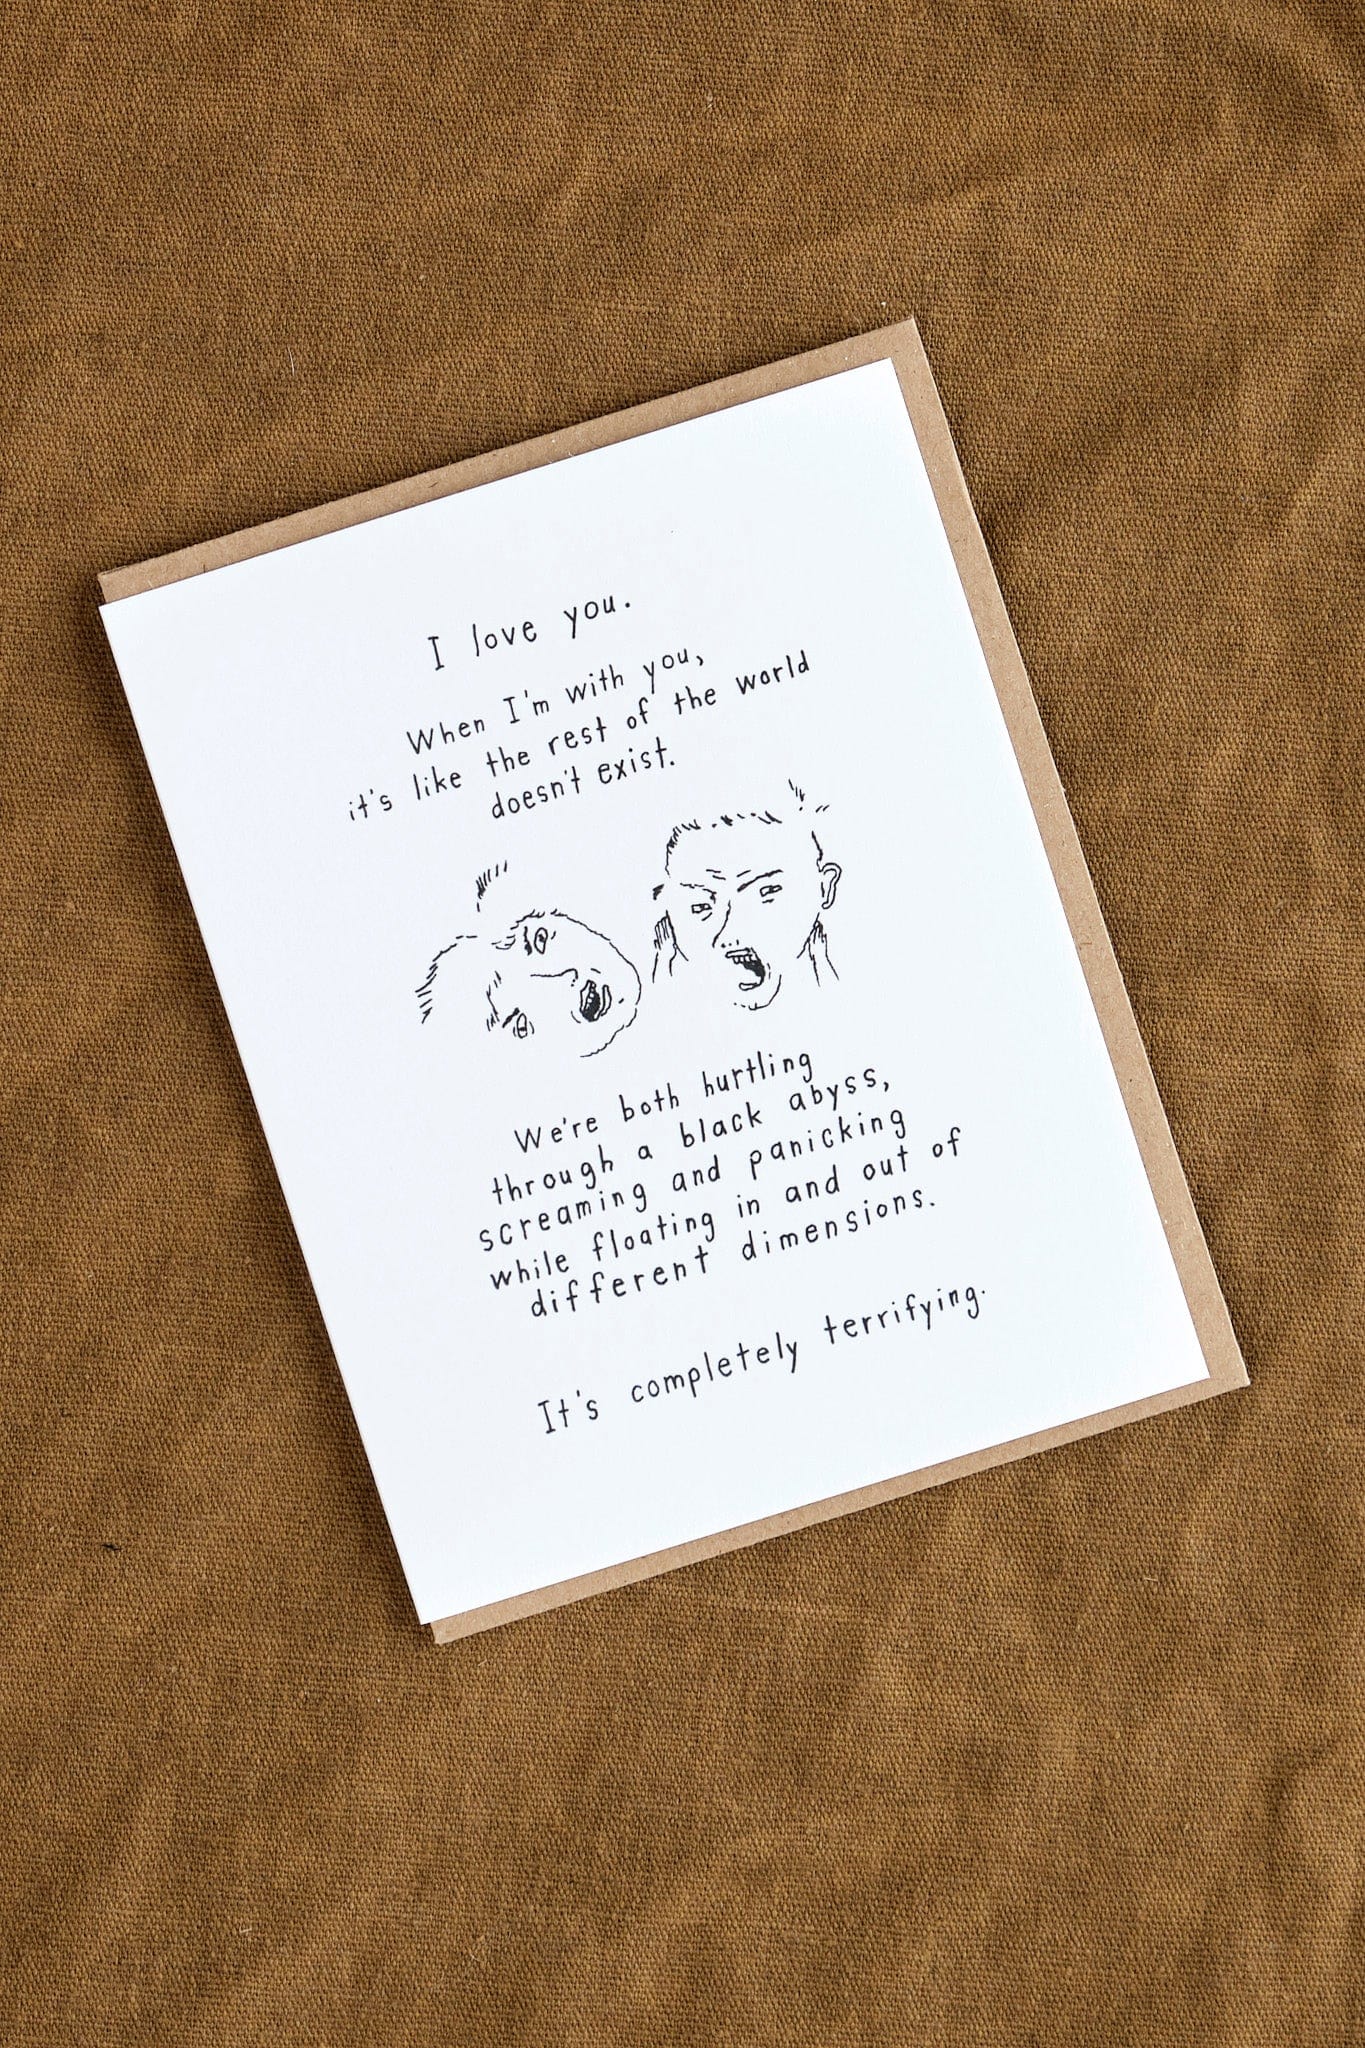 I love you.
When I'm with you,
it's like the rest of the world
doesn't exist.
We're both hurtling
through a black abyss,
screaming and panicking
while floating in and out of
different dimensions.
It's completely terrifying.